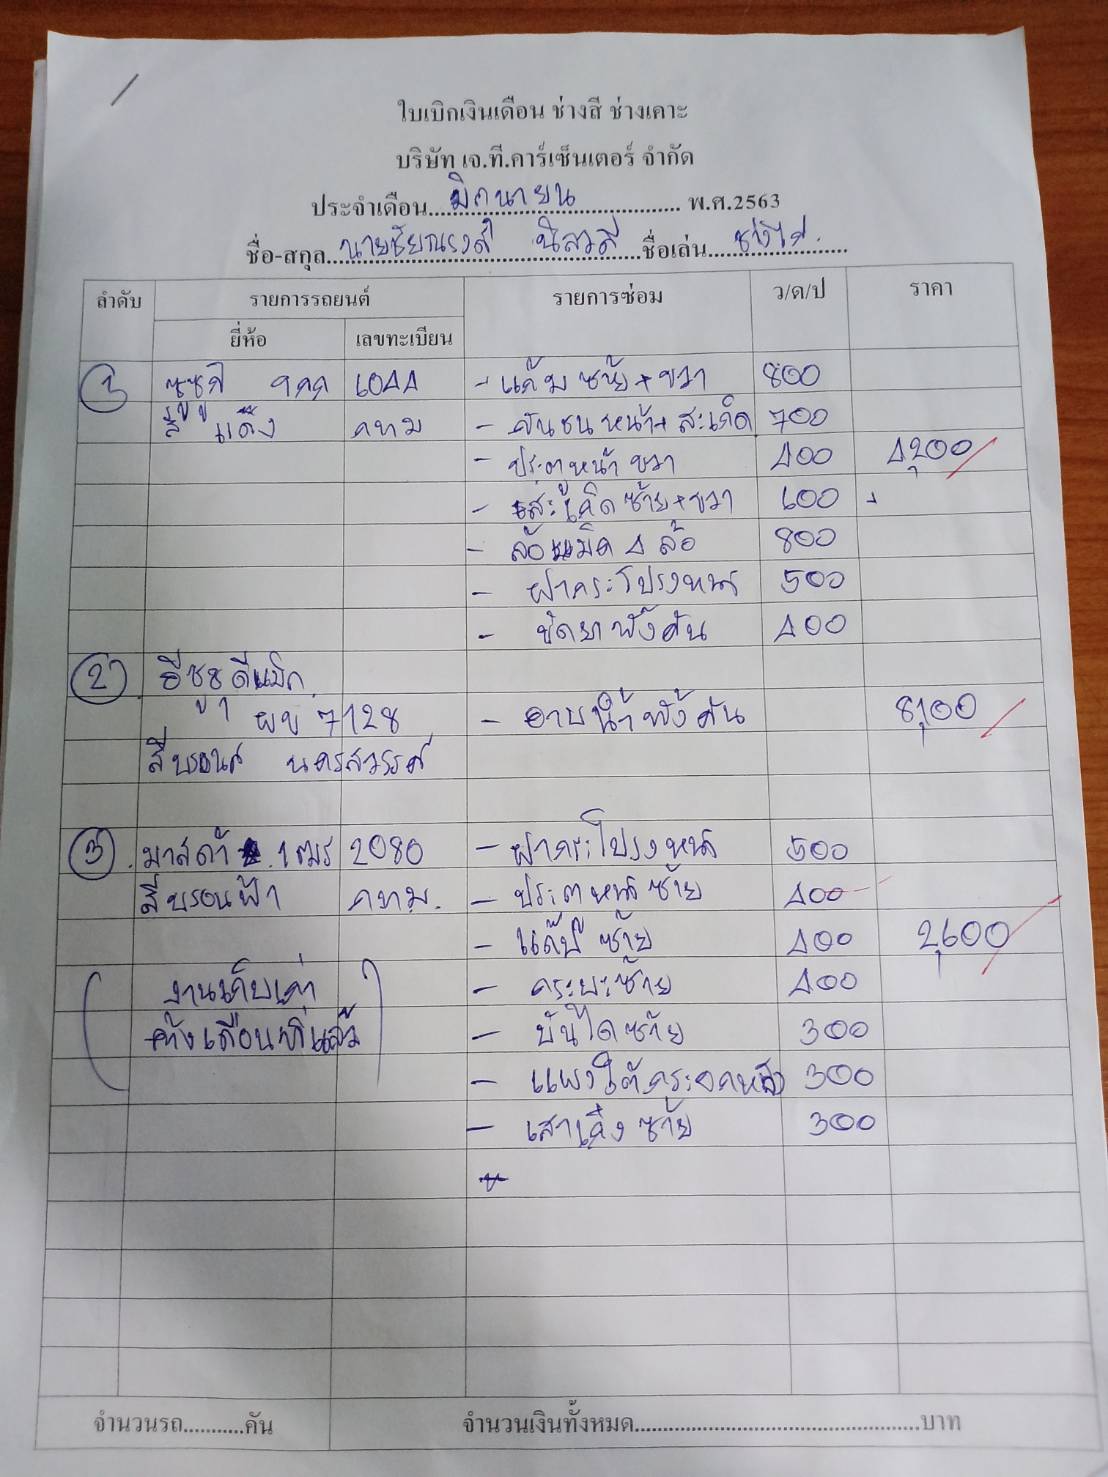 ใบเบิกเงินเดือน ช่างสี ช่างเคาะ
บริษัท เจ.ที.คาร์เซ็นเตอร์ จำกัด
ประจำเดือน มิถุนายน พ.ศ.2563
ชื่อ-สกุล นายชัยณรงค์ ชื่อเล่น
ลำดับ รายการรถยนต์ รายการซ่อม ว/ด/ป ราคา
ยี่ห้อ เลขทะเบียน
1 - แก้มซ้าย+ขวา 800
สี แดง กทม - กันชนหน้า+สะเก็ด 700
- ประตูหน้าขวา 400 4,200
- ซ้าย+ขวา 600
- ล้อแม็ค 4 ล้อ 800
- ฝากระโปรงหน้า 500
- ขัดยาทั้งคัน 400
2 อีซูซุ ดีแม็ก
ผข 7128 - อาบน้ำทั้งคัน 8,100
สีบรอนส์ นครสวรรค์
3 มาสด้า 1ฒร 2080 - ฝากระโปรงหน้า 500
สีบรอนฟ้า กทม. - ประตูหน้าซ้าย 400
- แค็ปซ้าย 400 2,600
(งานเก็บเก่า - กระบะซ้าย 400
ค้างเดือนที่แล้ว) - บันไดซ้าย 300
- แผงใต้กระจกหน้า 300
- เสาเก๋งซ้าย 300
จำนวนรถ...........คัน จำนวนเงินทั้งหมด..................................................บาท